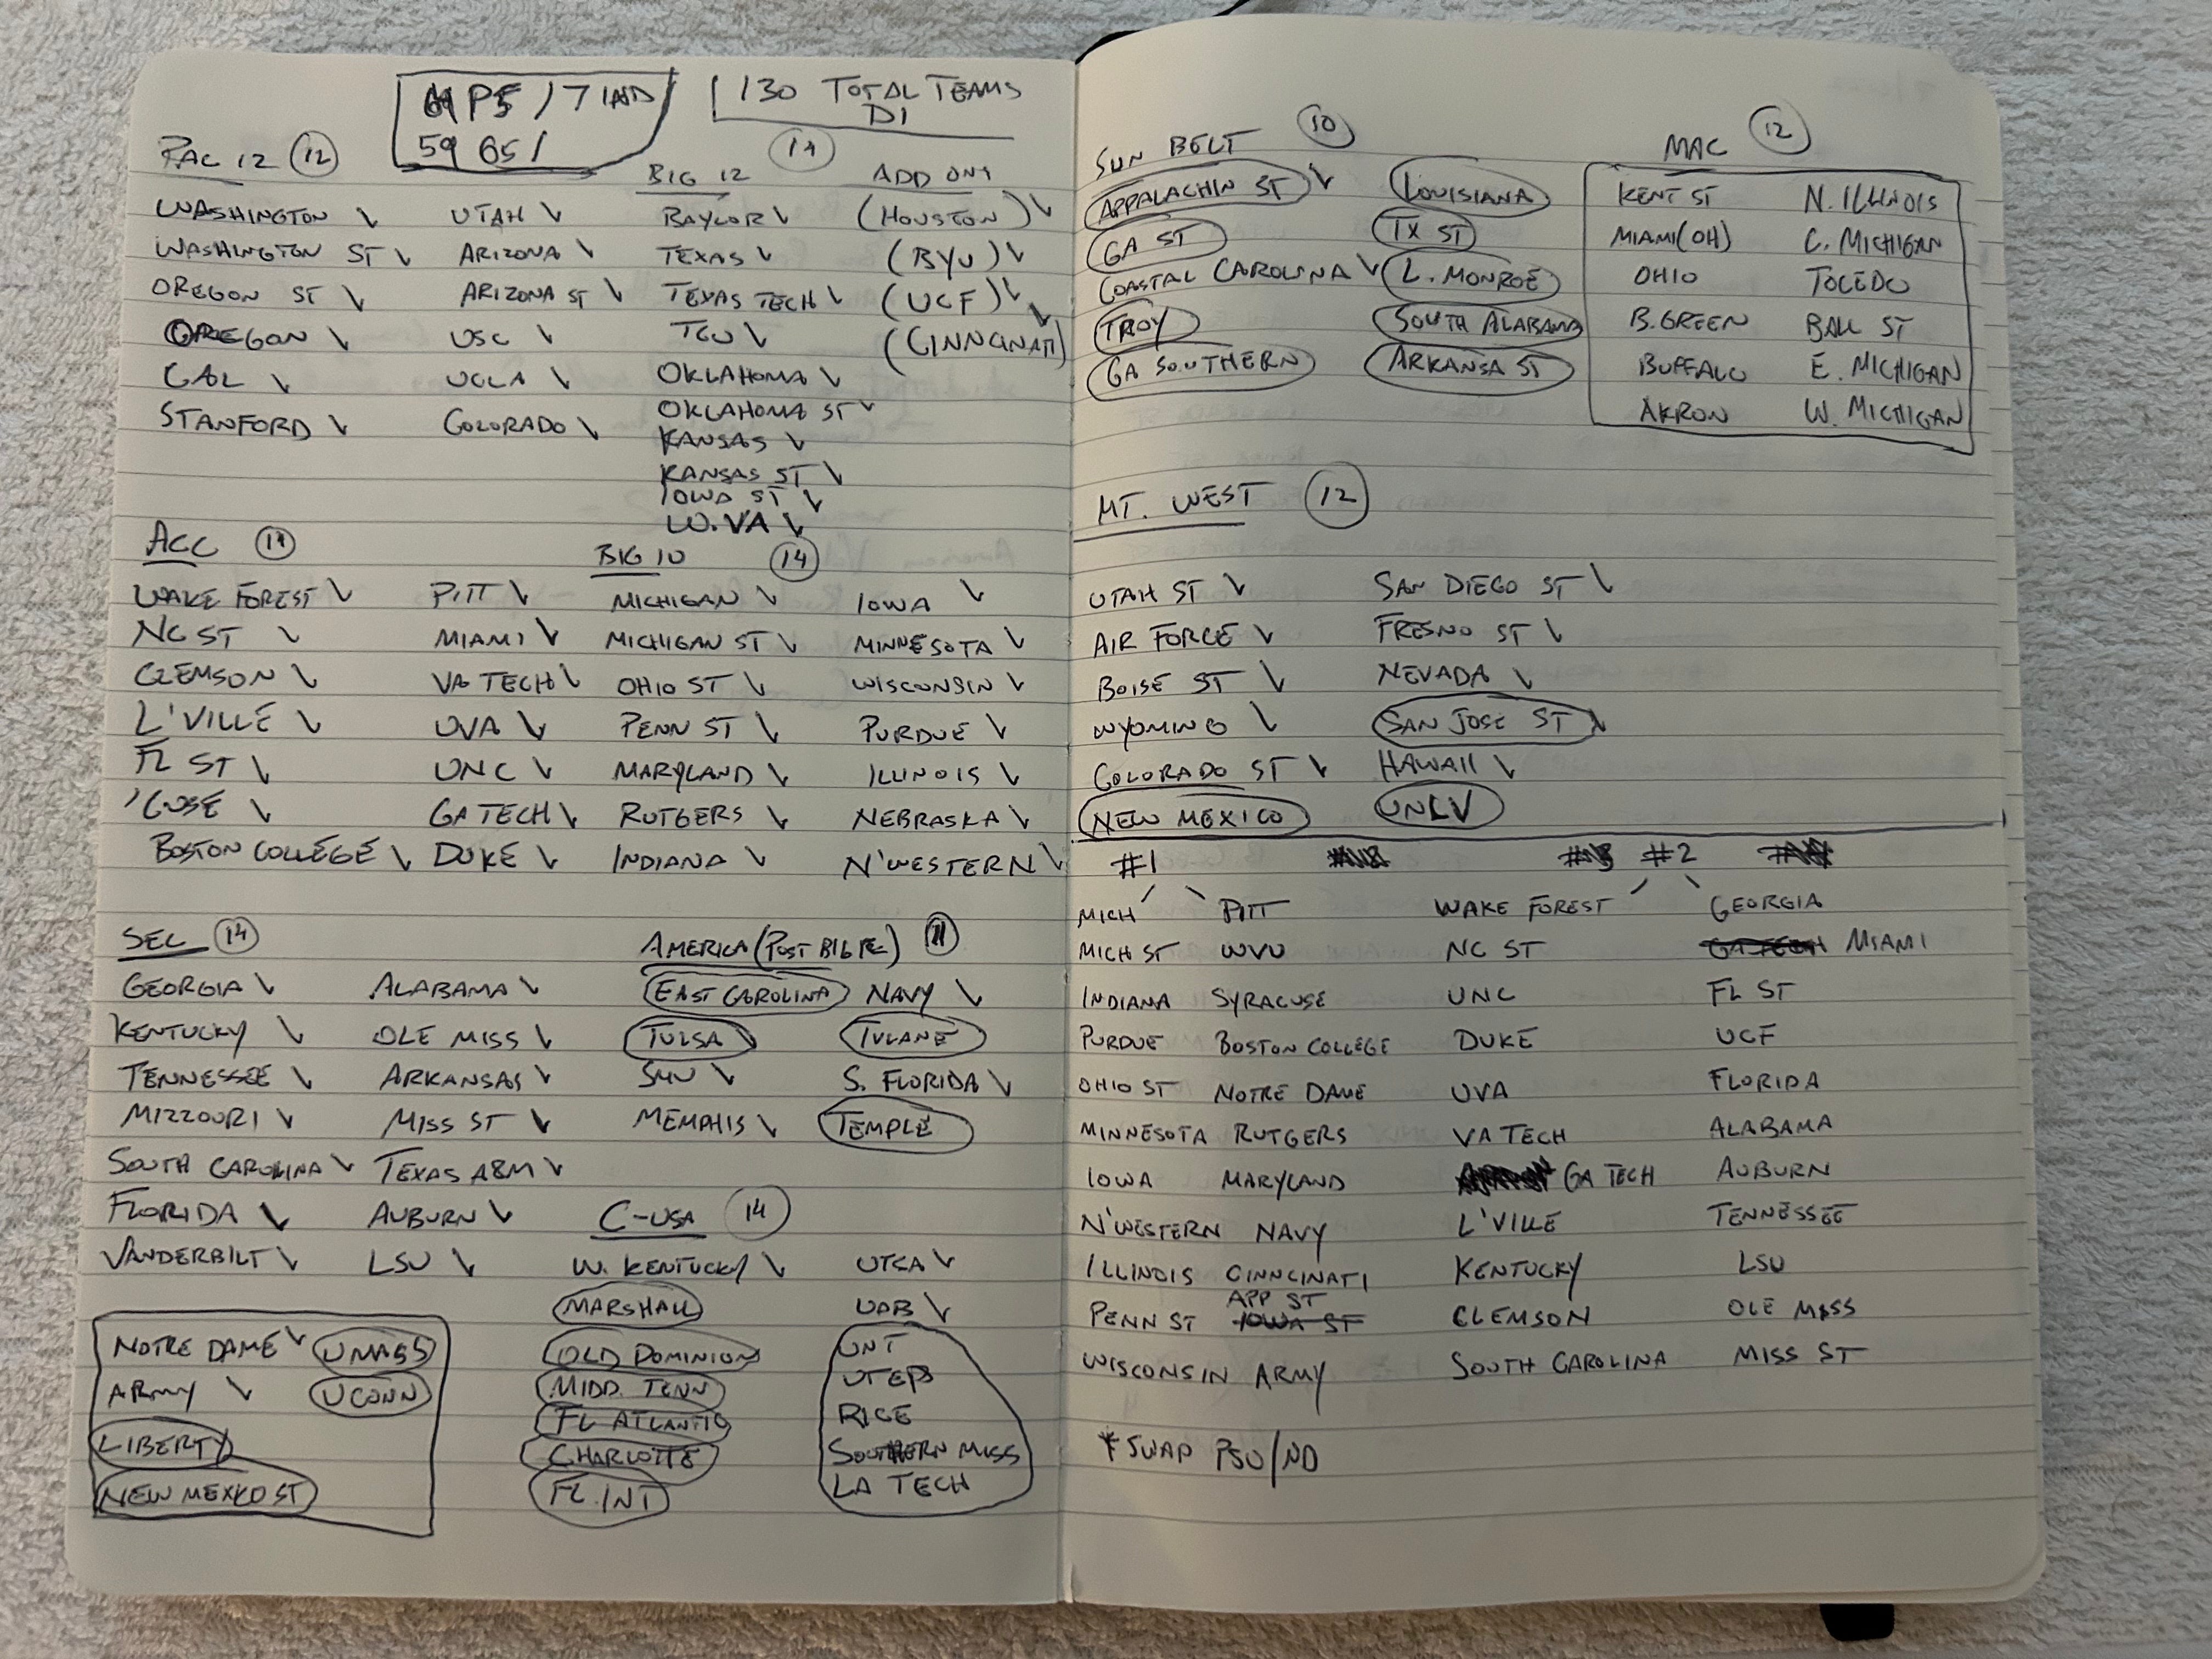 P5 / 7 IND
59 65 /
130 TOTAL TEAMS
D1
PAC 12 (12)
WASHINGTON ✓ UTAH ✓
WASHINGTON ST ✓ ARIZONA ✓
OREGON ST ✓ ARIZONA ST ✓
OREGON ✓ USC ✓
CAL ✓ UCLA ✓
STANFORD ✓ COLORADO ✓
BIG 12 (14) ADD ONS
BAYLOR ✓ (HOUSTON) ✓
TEXAS ✓ (BYU) ✓
TEXAS TECH ✓ (UCF) ✓
TCU ✓ (CINNCINATI) ✓
OKLAHOMA ✓
OKLAHOMA ST ✓
KANSAS ✓
KANSAS ST ✓
IOWA ST ✓
W.VA ✓
ACC (14)
WAKE FOREST ✓ PITT ✓
NC ST ✓ MIAMI ✓
CLEMSON ✓ VA TECH ✓
L'VILLE ✓ UVA ✓
FL ST ✓ UNC ✓
'CUSE ✓ GA TECH ✓
BOSTON COLLEGE ✓ DUKE ✓
BIG 10 (14)
MICHIGAN ✓ IOWA ✓
MICHIGAN ST ✓ MINNESOTA ✓
OHIO ST ✓ WISCONSIN ✓
PENN ST ✓ PURDUE ✓
MARYLAND ✓ ILLINOIS ✓
RUTGERS ✓ NEBRASKA ✓
INDIANA ✓ N'WESTERN ✓
SEC (14)
GEORGIA ✓ ALABAMA ✓
KENTUCKY ✓ OLE MISS ✓
TENNESSEE ✓ ARKANSAS ✓
MIZZOURI ✓ MISS ST ✓
SOUTH CAROLINA ✓ TEXAS A&M ✓
FLORIDA ✓ AUBURN ✓
VANDERBILT ✓ LSU ✓
AMERICA (POST BIG RE) (11)
EAST CAROLINA NAVY ✓
TULSA ✓ TULANE
SMU ✓ S. FLORIDA ✓
MEMPHIS ✓ TEMPLE
C-USA (14)
W. KENTUCKY ✓ UTSA ✓
MARSHALL UAB ✓
OLD DOMINION UNT
MIDD. TENN UTEP
FL ATLANTIC RICE
CHARLOTTE SOUTHERN MISS
FL. INT LA TECH
NOTRE DAME ✓ UMASS
ARMY ✓ UCONN
LIBERTY
NEW MEXICO ST
SUN BELT (10)
APPALACHIN ST ✓ LOUISIANA
GA ST TX ST
COASTAL CAROLINA ✓ L. MONROE
TROY SOUTH ALABAMA
GA SOUTHERN ARKANSA ST
MAC (12)
KENT ST N. ILLINOIS
MIAMI (OH) C. MICHIGAN
OHIO TOLEDO
B. GREEN BALL ST
BUFFALO E. MICHIGAN
AKRON W. MICHIGAN
MT. WEST (12)
UTAH ST ✓ SAN DIEGO ST ✓
AIR FORCE ✓ FRESNO ST ✓
BOISE ST ✓ NEVADA ✓
WYOMING ✓ SAN JOSE ST ✓
COLORADO ST ✓ HAWAII ✓
NEW MEXICO UNLV
#1 #2
MICH PITT WAKE FOREST GEORGIA
MICH ST WVU NC ST GA TECH MIAMI
INDIANA SYRACUSE UNC FL ST
PURDUE BOSTON COLLEGE DUKE UCF
OHIO ST NOTRE DAME UVA FLORIDA
MINNESOTA RUTGERS VA TECH ALABAMA
IOWA MARYLAND GA TECH AUBURN
N'WESTERN NAVY L'VILLE TENNESSEE
ILLINOIS CINNCINATI KENTUCKY LSU
APP ST
PENN ST IOWA ST CLEMSON OLE MISS
WISCONSIN ARMY SOUTH CAROLINA MISS ST
* SWAP PSU/ND